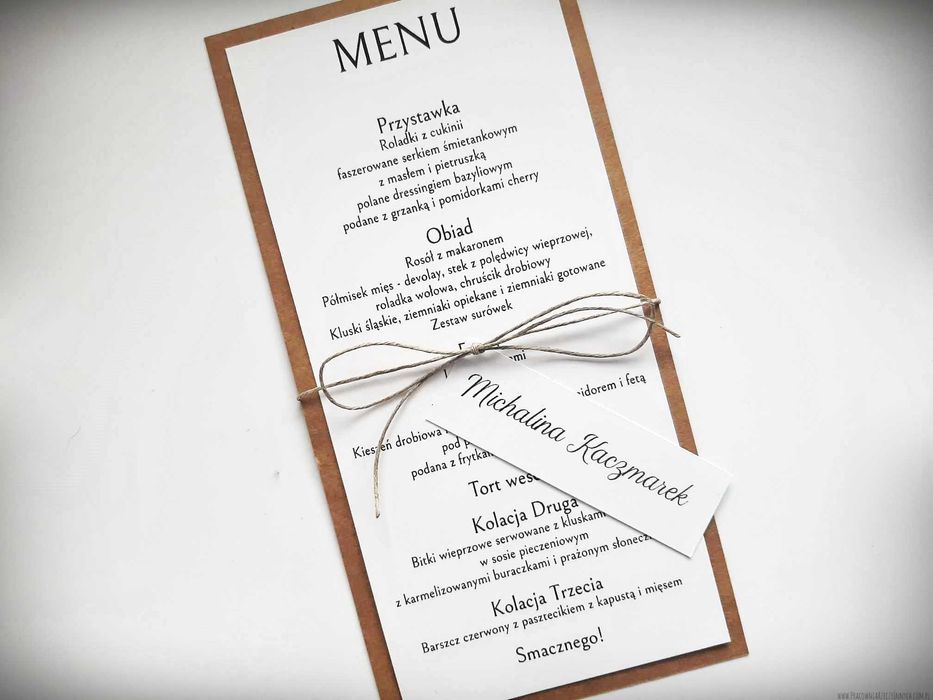 MENU
Przystawka
Roladki z cukinii
faszerowane serkiem śmietankowym
z masłem i pietruszką
polane dressingiem bazyliowym
podane z grzanką i pomidorkami cherry
Obiad
Rosół z makaronem
Półmisek mięs - devolay, stek z polędwicy wieprzowej,
roladka wołowa, chruścik drobiowy
Kluski śląskie, ziemniaki opiekane i ziemniaki gotowane
Zestaw surówek
i fetą
Kieszeń drobiowa
pod
podana z
Tort
Michalina Kaczmarek
Kolacja Druga
Bitki wieprzowe serwowane z kluskami
w sosie pieczeniowym
z karmelizowanymi buraczkami i prażonym
Kolacja Trzecia
Barszcz czerwony z pasztecikiem z kapustą i mięsem
Smacznego!